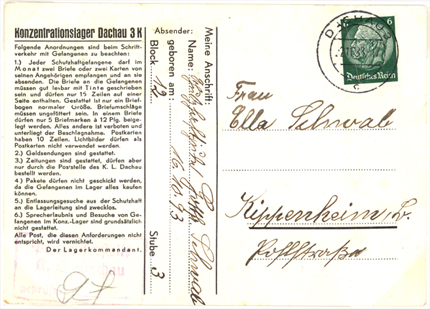 Konzentrationslager Dachau 3 K
Folgende Anordnungen sind beim Schrift-
verkehr mit Gefangenen zu beachten:
1.) Jeder Schutzhaftgefangene darf im
Monat zwei Briefe oder zwei Karten von
seinen Angehörigen empfangen und an sie
absenden. Die Briefe an die Gefangenen
müssen gut lesbar mit Tinte geschrieben
sein und dürfen nur 15 Zeilen auf einer
Seite enthalten. Gestattet ist nur ein Brief-
bogen normaler Größe. Briefumschläge
müssen ungefüttert sein. In einem Briefe
dürfen nur 5 Briefmarken à 12 Pfg. beige-
legt werden. Alles andere ist verboten und
unterliegt der Beschlagnahme. Postkarten
haben 10 Zeilen. Lichtbilder dürfen als
Postkarten nicht verwendet werden.
2.) Geldsendungen sind gestattet.
3.) Zeitungen sind gestattet, dürfen aber
nur durch die Poststelle des K. L. Dachau
bestellt werden.
4.) Pakete dürfen nicht geschickt werden,
da die Gefangenen im Lager alles kaufen
können.
5.) Entlassungsgesuche aus der Schutzhaft
an die Lagerleitung sind zwecklos.
6.) Sprecherlaubnis und Besuche von Ge-
fangenen im Konz.-Lager sind grundsätzlich
nicht gestattet.
Alle Post, die diesen Anforderungen nicht
entspricht, wird vernichtet.
Der Lagerkommandant.
Absender:
Meine Anschrift:
Name: Schwab
geboren am: 16.10.93
Block 12 Stube 3
DACHAU
6
Deutsches Reich
Frau
Ella Schwab
Kippenheim
Poststraße